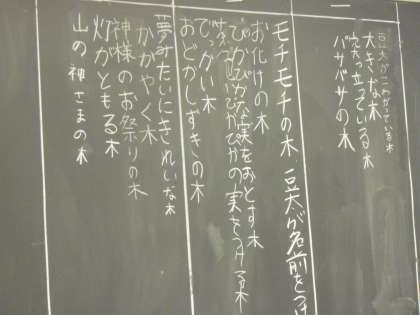 豆太がこわがっている木
大きな木
突っ立っている木
バサバサの木
モチモチの木 豆太が名前をつけ
お化けの木
ぴかぴかな実をおとす木
ぴかぴかの実をつける木
でっかい木
おどかしずきの木
夢みたいにきれいな木
かがやく木
神様のお祭りの木
灯がともる木
山の神さまの木